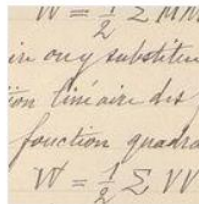 W = 1/2 Σ M M
in ou y substitu
ion linéaire des
fonction quadra
W = 1/2 Σ V V